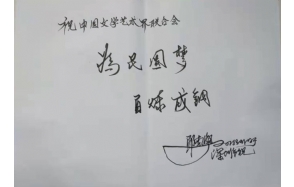 祝中国文学艺术界联合会
為民圆梦
百炼成钢